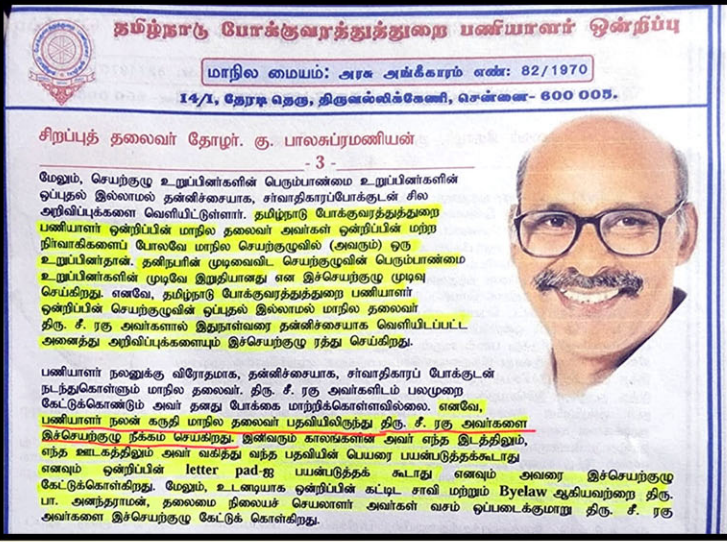 தமிழ்நாடு போக்குவரத்துத்துறை பணியாளர் ஒன்றிப்பு
மாநில மையம்: அரசு அங்கீகாரம் எண்: 82/1970
14/1, தேரடி தெரு, திருவல்லிக்கேணி, சென்னை- 600 005.
சிறப்புத் தலைவர் தோழர். கு. பாலசுப்ரமணியன்
- 3 -
மேலும், செயற்குழு உறுப்பினர்களின் பெரும்பாண்மை உறுப்பினர்களின்
ஒப்புதல் இல்லாமல் தன்னிச்சையாக, சர்வாதிகாரப்போக்குடன் சில
அறிவிப்புக்களை வெளியிட்டுள்ளார். தமிழ்நாடு போக்குவரத்துத்துறை
பணியாளர் ஒன்றிப்பின் மாநில தலைவர் அவர்கள் ஒன்றிப்பின் மற்ற
நிர்வாகிகளைப் போலவே மாநில செயற்குழுவில் (அவரும்) ஒரு
உறுப்பினர்தான். தனிநபரின் முடிவைவிட செயற்குழுவின் பெரும்பாண்மை
உறுப்பினர்களின் முடிவே இறுதியானது என இச்செயற்குழு முடிவு
செய்கிறது. எனவே, தமிழ்நாடு போக்குவரத்துத்துறை பணியாளர்
ஒன்றிப்பின் செயற்குழுவின் ஒப்புதல் இல்லாமல் மாநில தலைவர்
திரு. சீ. ரகு அவர்களால் இதுநாள்வரை தன்னிச்சையாக வெளியிடப்பட்ட
அனைத்து அறிவிப்புக்களையும் இச்செயற்குழு ரத்து செய்கிறது.
பணியாளர் நலனுக்கு விரோதமாக, தன்னிச்சையாக, சர்வாதிகாரப் போக்குடன்
நடந்துகொள்ளும் மாநில தலைவர். திரு. சீ. ரகு அவர்களிடம் பலமுறை
கேட்டுக்கொண்டும் அவர் தனது போக்கை மாற்றிக்கொள்ளவில்லை. எனவே,
பணியாளர் நலன் கருதி மாநில தலைவர் பதவியிலிருந்து திரு. சீ. ரகு அவர்களை
இச்செயற்குழு நீக்கம் செய்கிறது. இனிவரும் காலங்களின் அவர் எந்த இடத்திலும்,
எந்த ஊடகத்திலும் அவர் வகித்து வந்த பதவியின் பெயரை பயன்படுத்தக்கூடாது
எனவும் ஒன்றிப்பின் letter pad-ஐ பயன்படுத்தக் கூடாது எனவும் அவரை இச்செயற்குழு
கேட்டுக்கொள்கிறது. மேலும், உடனடியாக ஒன்றிப்பின் கட்டிட சாவி மற்றும் Byelaw ஆகியவற்றை திரு.
பா. அனந்தராமன், தலைமை நிலையச் செயலாளர் அவர்கள் வசம் ஒப்படைக்குமாறு திரு. சீ. ரகு
அவர்களை இச்செயற்குழு கேட்டுக் கொள்கிறது.